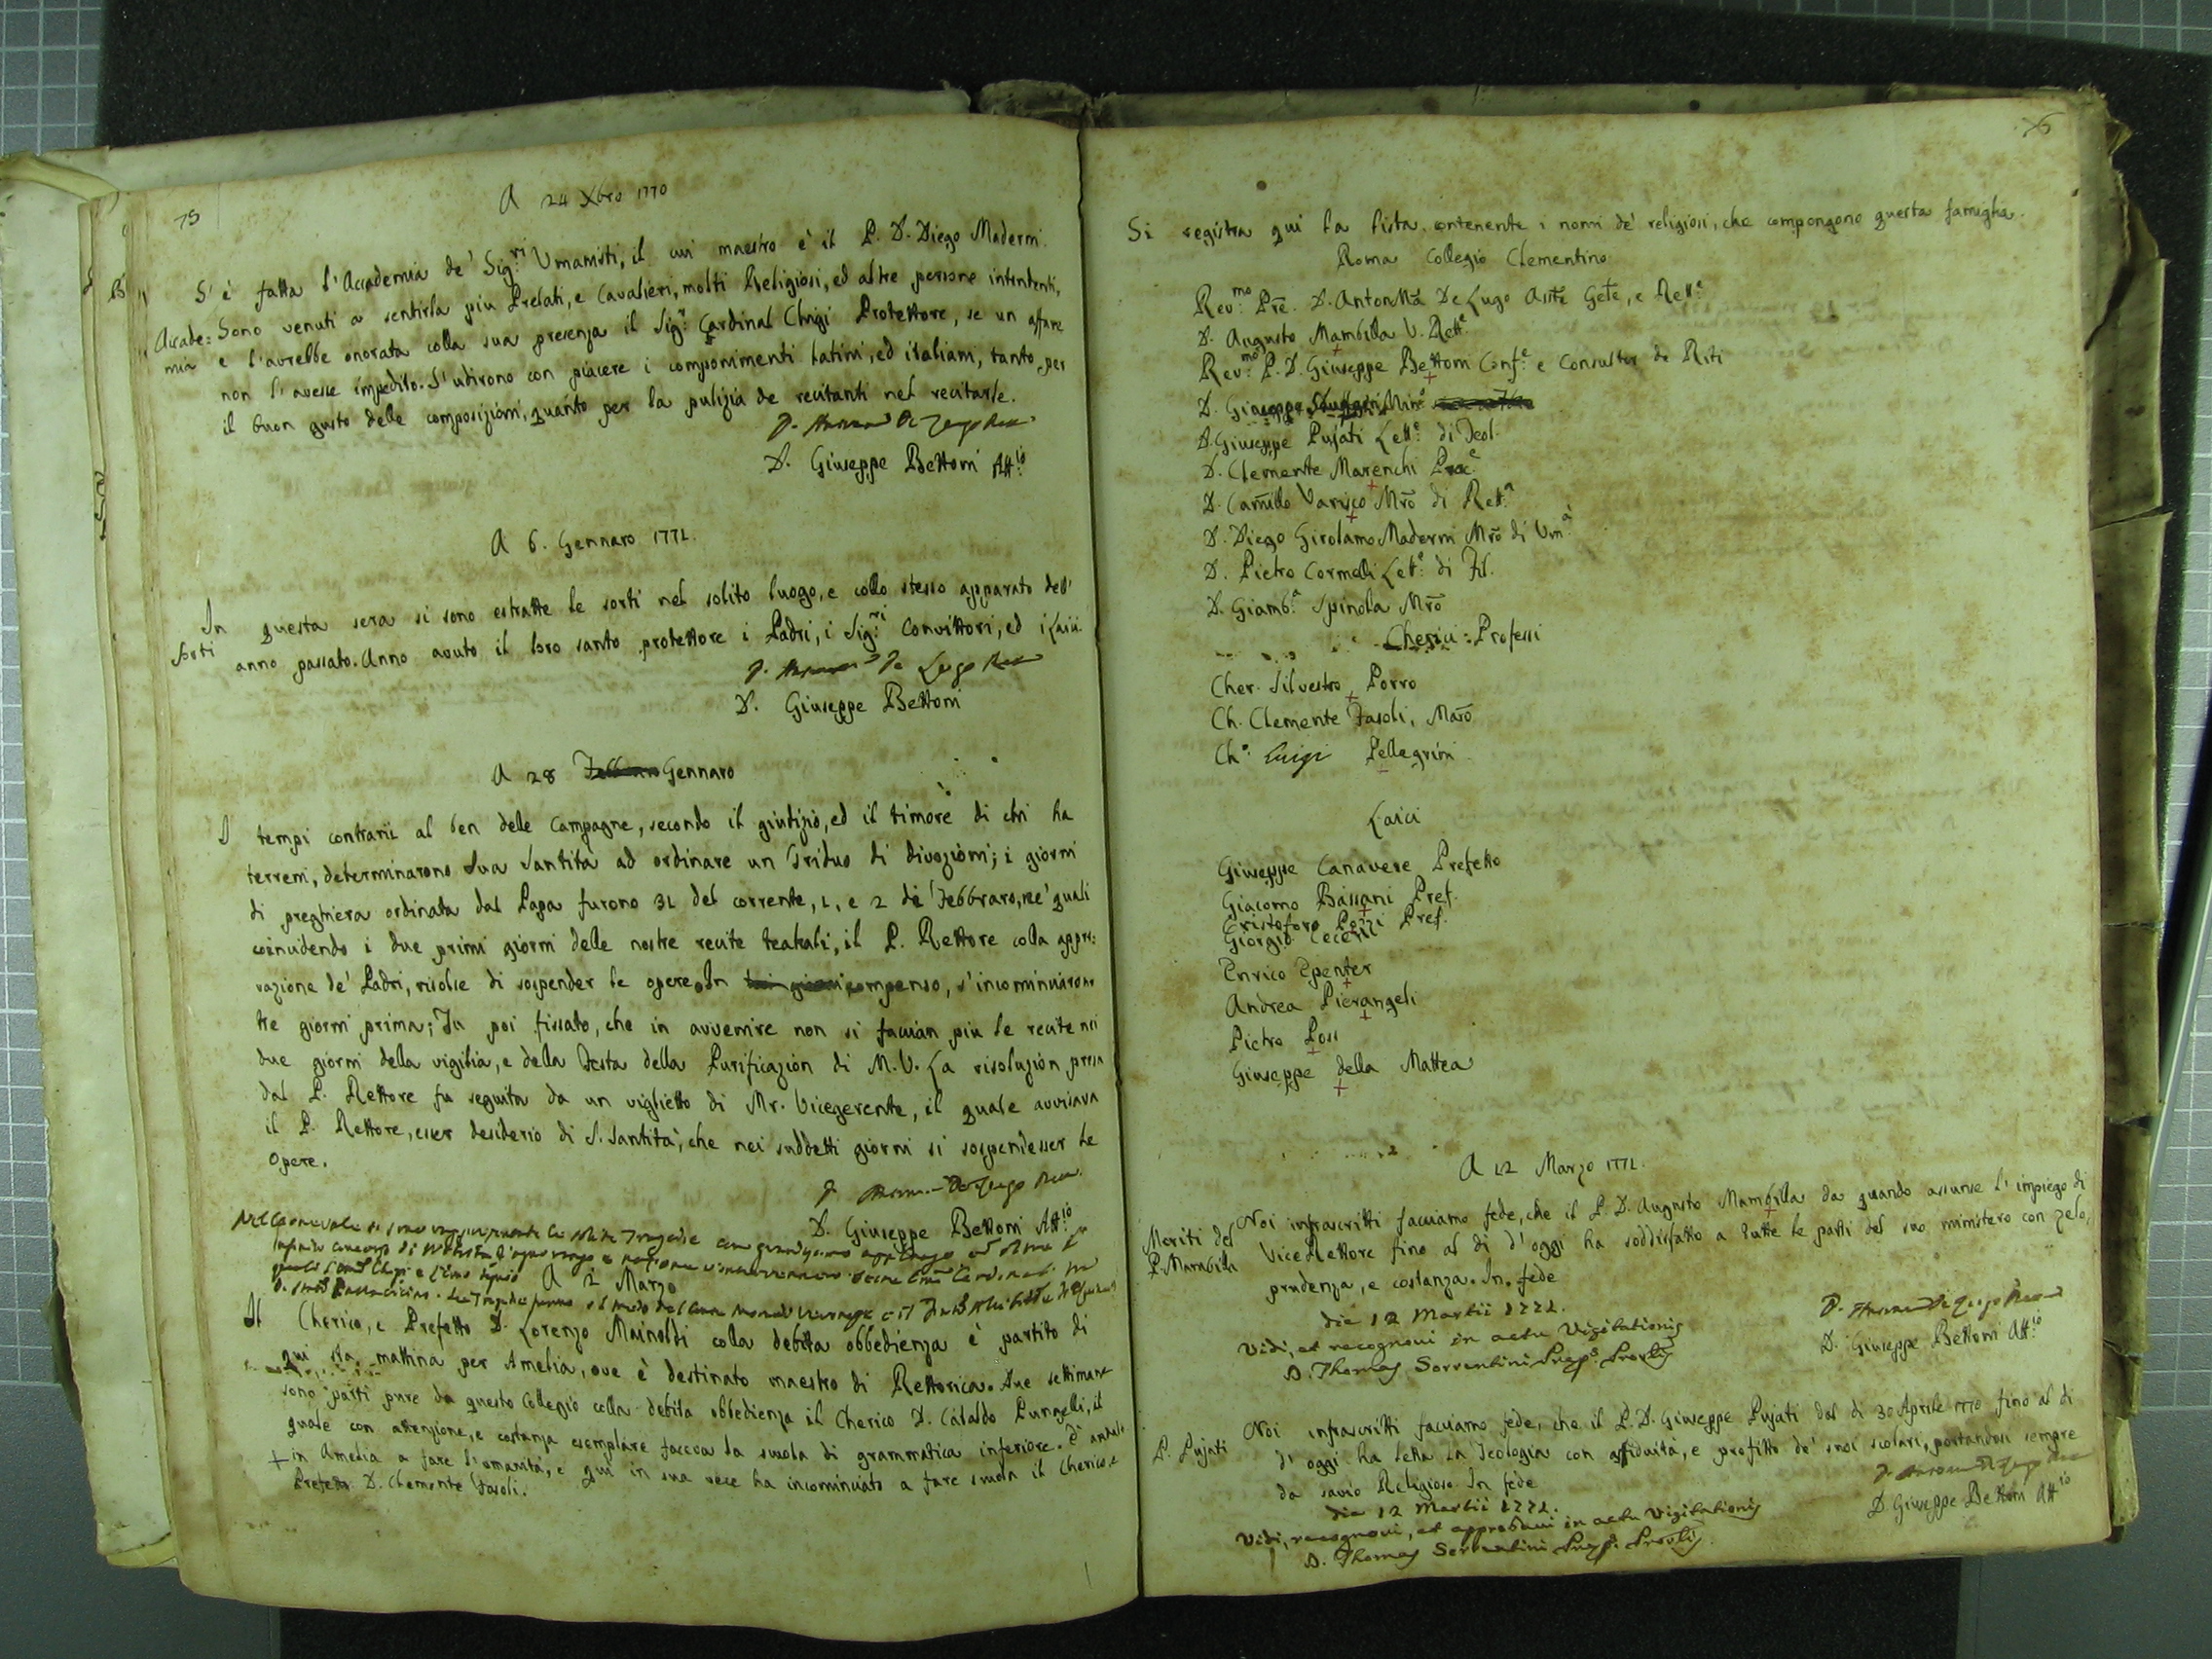 75
A 24 Xbro 1770
S' è fatta l'Accademia de' Sig.ri Umanisti, il cui maestro è il P. D. Diego Maderni.
Accade= Sono venuti a sentirla più Prelati, e Cavalieri, molti Religiosi, ed altre persone intendenti,
mia e l'avrebbe onorata colla sua presenza il Sig.r Cardinal Chigi Protettore, se un affare
non l'avesse impedito. S'udirono con piacere i componimenti latini, ed italiani, tanto per
il buon gusto delle composizioni, quanto per la pulizia de recitanti nel recitarle.
D. De Lugo
D. Giuseppe Bettoni Att.io
A 6. Gennaro 1771.
In questa sera si sono estratte le sorti nel solito luogo, e collo stesso apparato dell'
Sorti anno passato. Anno avuto il loro santo protettore i Padri, i Sig.ri Convittori, ed i Laici.
D. De Lugo
D. Giuseppe Bettoni
A 28 Gennaro
I tempi contrarii al ben delle Campagne, secondo il giudizio, ed il timore di chi ha
terreni, determinarono Sua Santità ad ordinare un Triduo di divozioni; i giorni
di preghiera ordinata dal Papa furono 31 del corrente, 1, e 2 di Febbraro, ne' quali
coincidendo i due primi giorni delle nostre recite teatrali, il P. Rettore colla appro=
vazione de' Padri, risolse di sospender le opere. In compenso, s'incominciarono
tre giorni prima; Fu poi fissato, che in avvenire non si faccian più le recite nei
due giorni della vigilia, e della Festa della Purificazion di M. V. La risoluzion presa
dal P. Rettore fu seguita da un viglietto di Mr. Vicegerente, il quale avvisava
il P. Rettore, esser desiderio di S. Santità, che nei suddetti giorni si sospendesser le
Opere.
D. De Lugo
D. Giuseppe Bettoni Att.io
Nel Carnevale si sono le solite Tragedie con grandissimo applauso, ed
infinito concorso di d'ogni rango e nazione
A 2 Marzo
Il Cherico, e Prefetto D. Lorenzo Mainoldi colla debita obbedienza è partito di
qui sta mattina per Amelia, ove è destinato maestro di Rettorica. Due settimane
sono partì pure da questo Collegio colla debita obbedienza il Cherico D. Cataldo Pungelli, il
quale con attenzione, e costanza esemplare faceva la scuola di grammatica inferiore.
+ in Amelia a fare l'umanità, e qui in sua vece ha incominciato a fare scuola il Cherico, e
Prefetto D. Clemente Fasoli.
76
Si registra qui la lista contenente i nomi de' religiosi, che compongono questa famiglia.
Roma Collegio Clementino
Rev.mo Pre. D. Anton Ma De Lugo Asste Gete, e Rett.e
D. Augusto Mambilla V. Rett.e
Rev.mo P. D. Giuseppe Bettoni Conf.e e Consultor de Riti
D. Min.o
D. Giuseppe Pujati Lett.e di Teol.
D. Clemente Marenchi Proc.e
D. Camillo Varisco Mro di Rett.a
D. Diego Girolamo Maderni Mro di Um.à
D. Pietro Cermelli Lett.e di Fil.
D. Giamb.a Spinola Mro
Cherici Professi
Cher. Silvestro Porro
Ch. Clemente Fasoli, Mrō
Ch.o Luigi Pellegrini
Laici
Giuseppe Canavese Prefetto
Giacomo Bassani Pref.
Cristoforo Pozzi Pref.
Giorgio
Enrico Epenter
Andrea Pierangeli
Pietro Poss
Giuseppe della Mattea
A 12 Marzo 1771.
Meriti del Noi infrascritti facciamo fede, che il P. D. Augusto Mambilla da quando assunse l'impiego di
P. Mambilla Vice Rettore fino al dì d'oggi ha soddisfatto a tutte le parti del suo ministero con zelo,
prudenza, e costanza. In fede
die 12 Martii 1771.
Vidi, et recognovi in actu Visitationis
D. Thomas Sorrentini Prep.s Provlis
D. De Lugo
D. Giuseppe Bettoni Att.io
P. Pujati Noi infrascritti facciamo fede, che il P. D. Giuseppe Pujati dal dì 30 Aprile 1770 fino al dì
d'oggi ha letta la Teologia con assiduità, e profitto de' suoi scolari, portandosi sempre
da savio Religioso. In fede
die 12 Martii 1771.
Vidi, recognovi, et approbavi in actu Visitationis
D. Thomas Sorrentini Prep.s Provlis
D. De Lugo
D. Giuseppe Bettoni Att.io